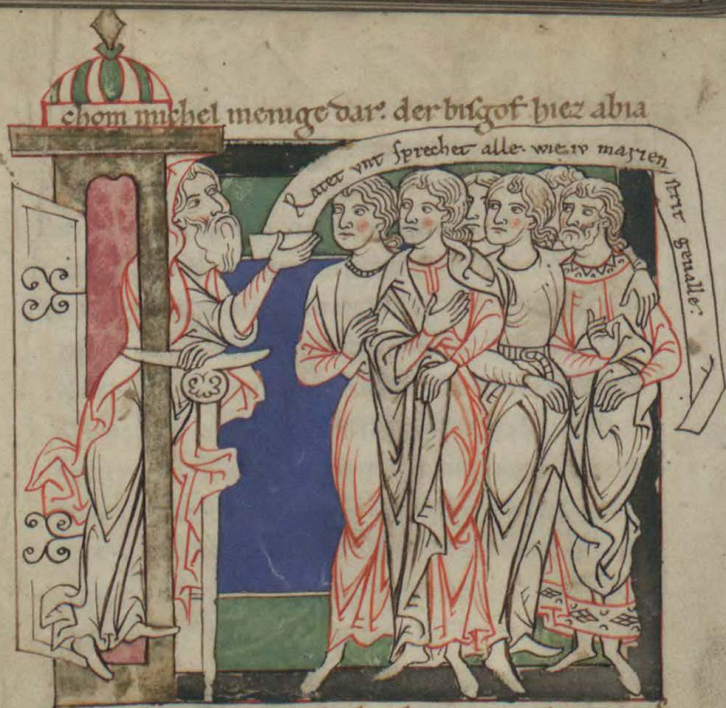 chom michel menige dar. der biſgof hiez abia
Ratet vnt ſprechet alle. wie iv marien ſtrit geualle.